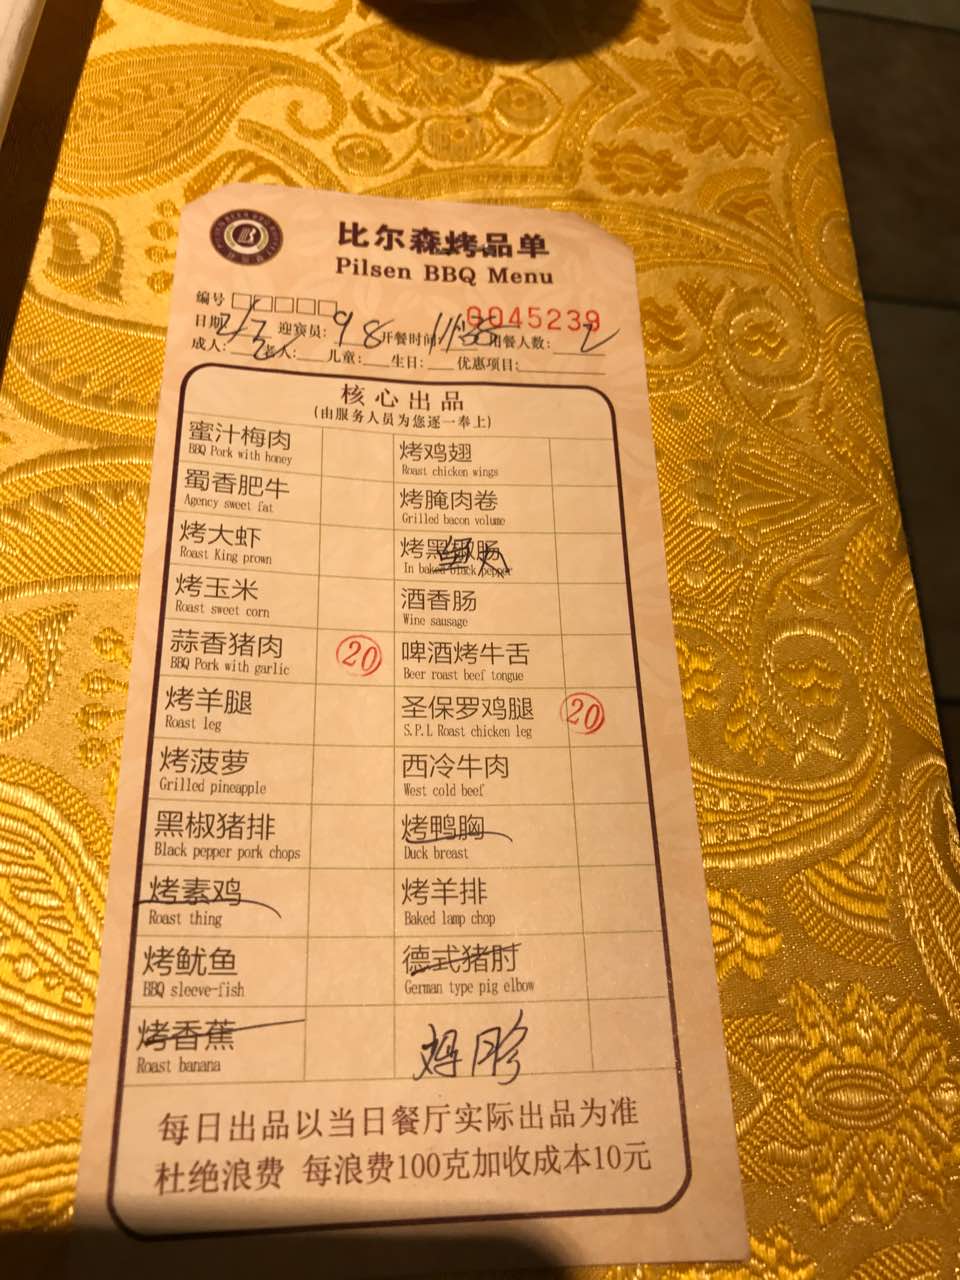 比尔森烤品单
Pilsen BBQ Menu
编号
0045239
日期 迎宾员: 98 开餐时间 用餐人数: 2
成人: 2 老人: 儿童: 生日: 优惠项目:
核心出品
(由服务人员为您逐一奉上)
蜜汁梅肉
BBQ Pork with honey
烤鸡翅
Roast chicken wings
蜀香肥牛
Agency sweet fat
烤腌肉卷
Grilled bacon volume
烤大虾
Roast King prown
烤黑椒肠
In baked black pepper
烤玉米
Roast sweet corn
酒香肠
Wine sausage
蒜香猪肉
BBQ Pork with garlic
20
啤酒烤牛舌
Beer roast beef tongue
烤羊腿
Roast leg
圣保罗鸡腿
S.P.L Roast chicken leg
20
烤菠萝
Grilled pineapple
西冷牛肉
West cold beef
黑椒猪排
Black pepper pork chops
烤鸭胸
Duck breast
烤素鸡
Roast thing
烤羊排
Baked lamp chop
烤鱿鱼
BBQ sleeve-fish
德式猪肘
German type pig elbow
烤香蕉
Roast banana
每日出品以当日餐厅实际出品为准
杜绝浪费 每浪费100克加收成本10元